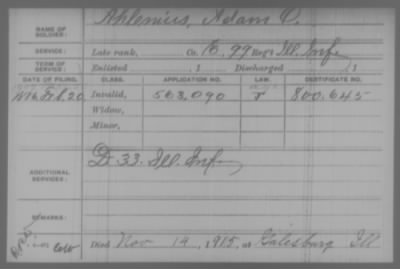 NAME OF SOLDIER: Ahlenius, Adam O.
SERVICE: Late rank, Co. E, 99 Reg't Ill. Inf.
TERM OF SERVICE: Enlisted , 1 Discharged , 1
DATE OF FILING. CLASS. APPLICATION NO. LAW. CERTIFICATE NO.
Feb. 20 Invalid, 563,090 800,645
Widow,
Minor,
ADDITIONAL SERVICES: D. 33. Ill. Inf.
REMARKS:
Died Nov 14, 1915, at Galesburg Ill